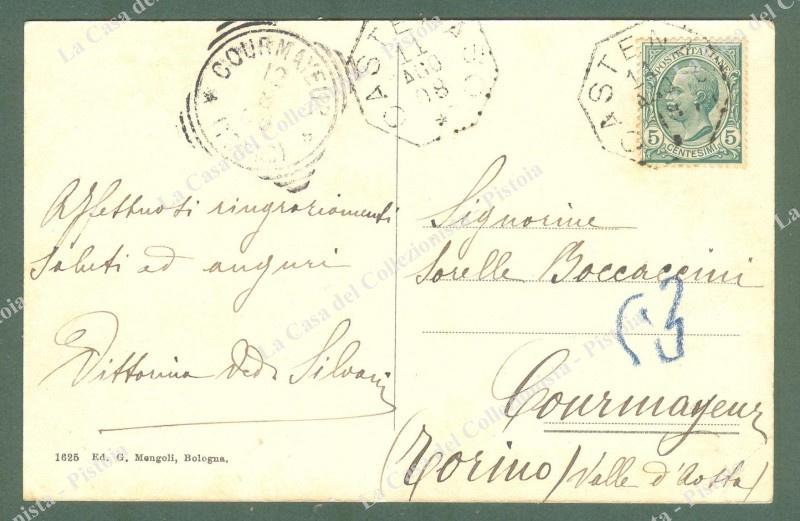 COURMAYEUR
12
8
CASTE
11
AGO
08
POSTE ITALIANE
5 5
CENTESIMI
Affettuosi ringraziamenti
saluti ed auguri
Vittorina Ved. Silvani
Signorine
Sorelle Boccaccini
Courmayeur
(Torino) (Valle d'Aosta)
1625 Ed. G. Mengoli, Bologna.
La Casa del Collezionista - Pistoia